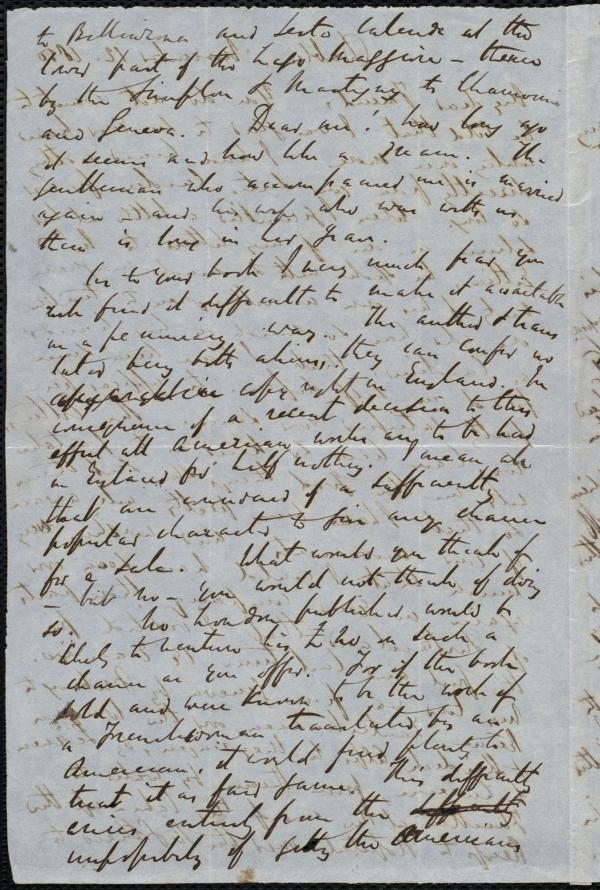 to Bellinzona and Sesto Calende at the
lower part of the Lago Maggiore – thence
by the Simplon & Martigny to Chamouni
and Geneva. Dear me! how long ago
it seems and how like a dream. The
gentleman who accompanied me is married
again – and his wife who was with us
then is long in her grave.
As to your book I very much fear you
will find it difficult to make it available
in a pecuniary way. The author & trans
lator being both aliens, they can confer no
copyright in England. In
consequence of a recent decision to this
effect all American works are to be had
in England for half nothing. I mean all
that are of a sufficiently
popular character to give any chance
for a sale. What would you think of
– but no – you would not think of doing
so. No London publisher would be
likely to venture his £ in such a
chance as you offer. For if the book
sold, and were known to be the work of
a Frenchwoman translated by an
American, it would find plenty to
treat it as fair game. This difficulty
arises entirely from the
improbity of the Americans